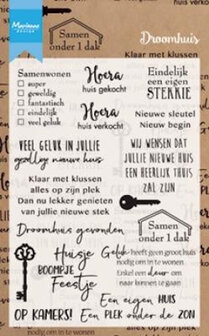 Marianne
Design
Samen
onder 1 dak
Droomhuis
Klaar met klussen
Samenwonen
super
geweldig
fantastisch
eindelijk
veel geluk
Hoera
huis gekocht
Hoera
huis verkocht
Eindelijk
een eigen
STEKKIE
Nieuwe sleutel
Nieuw begin
VEEL GELUK IN JULLIE
gezellige nieuwe huis
WIJ WENSEN DAT
JULLIE NIEUWE HUIS
EEN HEERLIJK THUIS
ZAL ZIJN
Klaar met klussen
alles op zijn plek
Dan nu lekker genieten
van jullie nieuwe stek
Droomhuis gevonden
Samen
onder 1 dak
Huisje
BOOMPJE
Feestje
Geluk heeft geen groot huis
nodig om in te wonen
Enkel een deur om
naar binnen te gaan
OP KAMERS!
Een eigen HUIS
Een plek onder de ZON